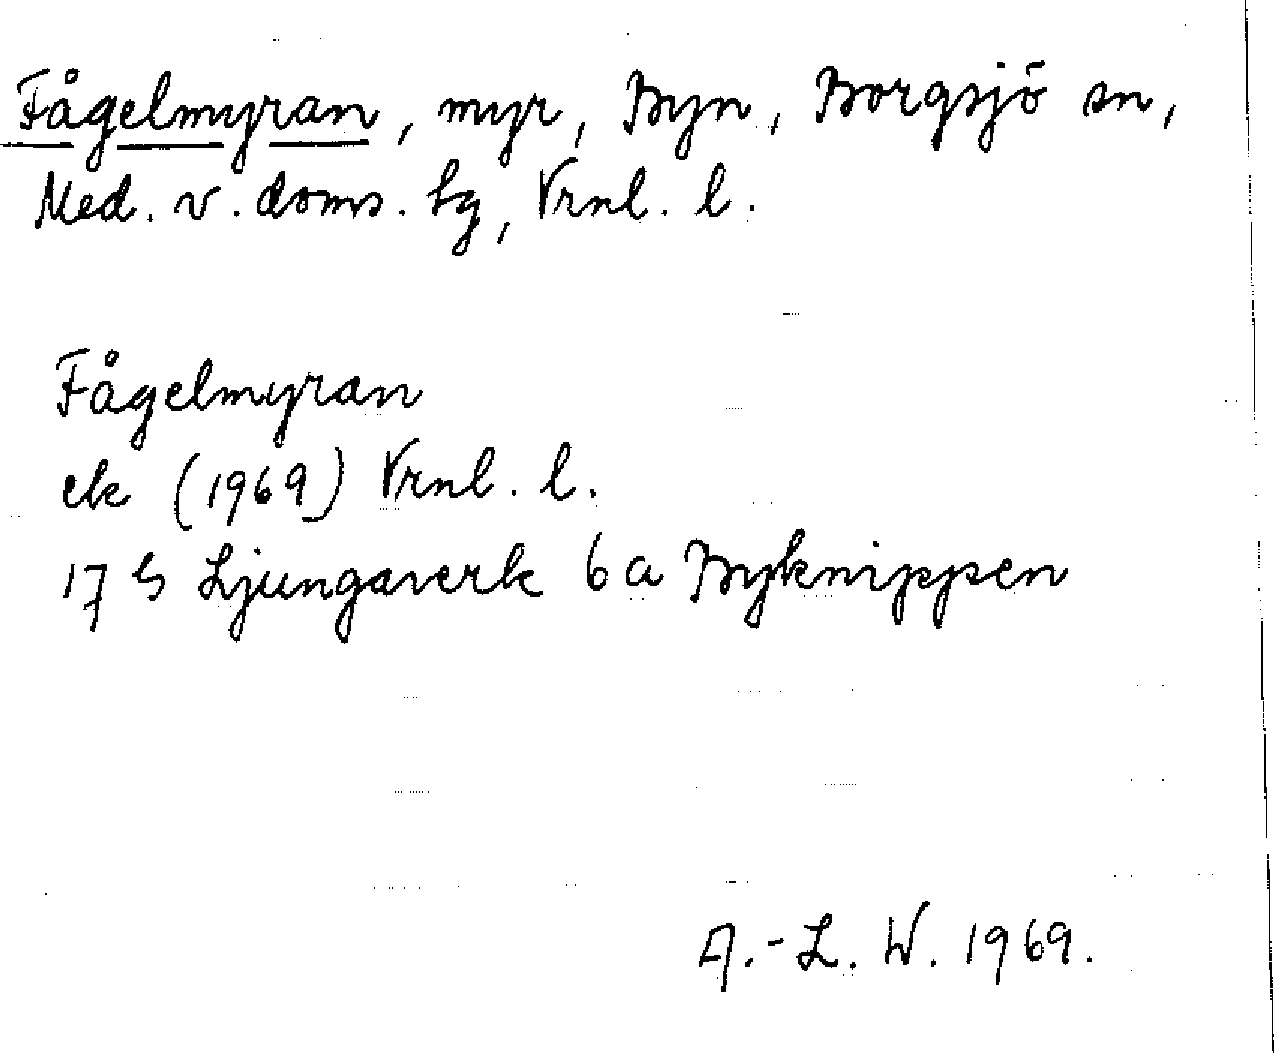 Fågelmyran, myr, Byn, Borgsjö sn,
Med. v. doms. tg, Vrnl. l.
Fågelmyran
ek (1969) Vrnl. l.
17 G Ljungaverk 6 a Byknippen
A.-L. W. 1969.